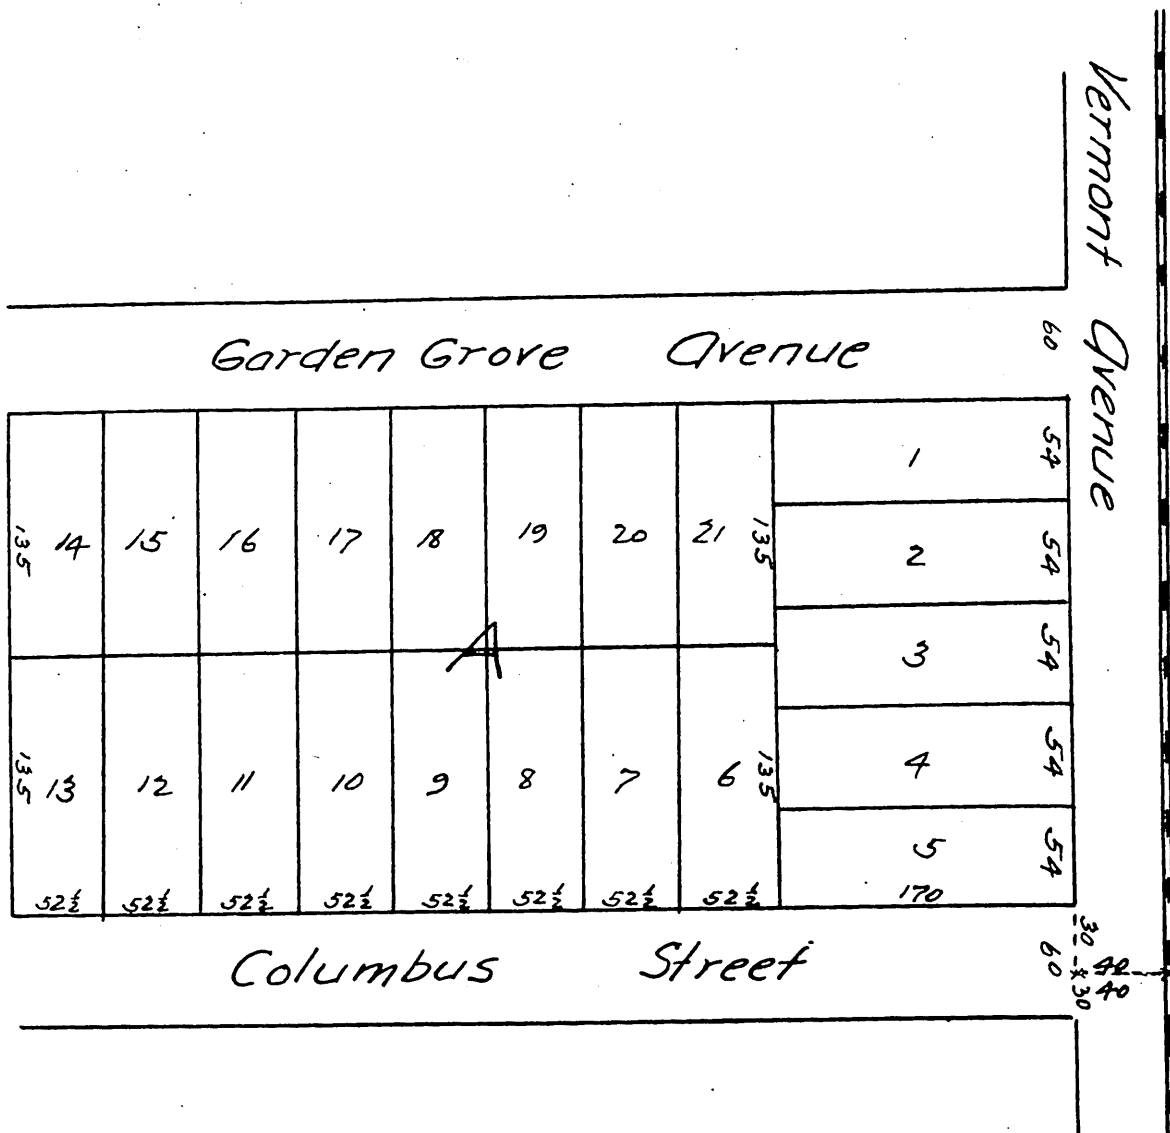 Vermont Avenue
Garden Grove Avenue
60
1 54
14 15 16 17 18 19 20 21
135 135
2 54
A
3 54
4 54
13 12 11 10 9 8 7 6
135 135
5 54
52½ 52½ 52½ 52½ 52½ 52½ 52½ 52½ 170
Columbus Street
60
30 40
30 40